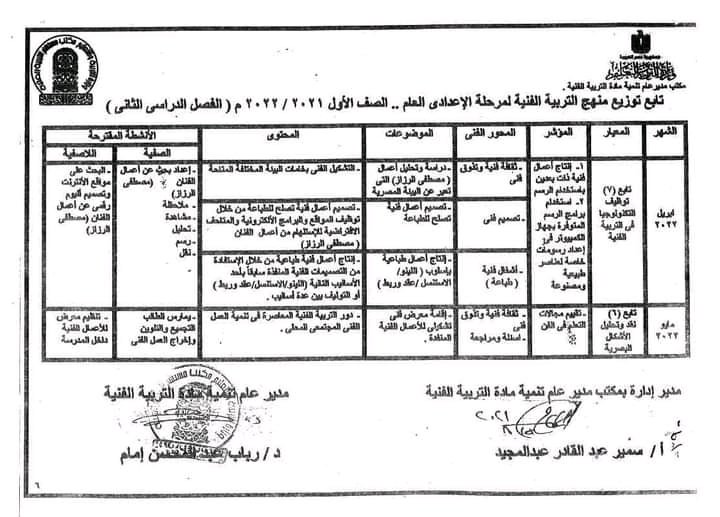 جمهورية مصر العربية
وزارة التربية والتعليم
مكتب مدير عام تنمية مادة التربية الفنية .
تابع توزيع منهج التربية الفنية لمرحلة الإعدادى العام .. الصف الأول ٢٠٢١ / ٢٠٢٢ م ( الفصل الدراسى الثانى )
الشهر
المعيار
المؤشر
المحور الفنى
الموضوعات
المحتوى
الأنشطة المقترحة
الصفية
اللاصفية
ابريل
٢٠٢٢
تابع (٧)
توظيف
التكنولوجيا
فى التربية
الفنية
١- إنتاج أعمال
فنية ذات بعدين
باستخدام الرسم
٢- استخدام
برامج الرسم
المتوفرة بجهاز
الكمبيوتر فى
إعداد رسومات
خاصة لعناصر
طبيعية
ومصنوعة
- ثقافة فنية وتذوق
فنى
- دراسة وتحليل أعمال
( مصطفى الرزاز ) التى
تعبر عن البيئة المصرية
- التشكيل الفنى بخامات البيئة المختلفة المتاحة
- تصميم فنى
- تصميم أعمال فنية
تصلح للطباعة
- تصميم أعمال فنية تصلح للطباعة من خلال
توظيف المواقع والبرامج الألكترونية والمتاحف
الافتراضية للإستلهام من أعمال الفنان
( مصطفى الرزاز )
- أشغال فنية
( طباعة )
- إنتاج أعمال طباعية
بإسلوب ( اللينو/
الاستنسل /عقد وربط )
- إنتاج أعمال فنية طباعية من خلال الإستفادة
من التصميمات الفنية المنفذة سابقاً بأحد
الأساليب التالية (اللينو/الاستنسل/عقد وربط )
أو التوليف بين عدة أساليب .
- إعداد بحث عن أعمال
الفنان (مصطفى
الرزاز)
- ملاحظة
- مشاهدة
- تحليل
- رسم
- نقل
- البحث على
مواقع الأنترنت
وتصميم ألبوم
رقمى عن أعمال
الفنان (مصطفى
الرزاز)
مايو
٢٠٢٢
تابع (٦)
نقد وتحليل
الأشكال
البصرية
- تقييم مجالات
التعلم فى الفن
- ثقافة فنية وتذوق
فنى
- اسئلة ومراجعة
- إقامة معرض فنى
تشكيلى للأعمال الفنية
المنفذة .
- دور التربية الفنية المعاصرة فى تنمية العمل
الفنى المجتمعى المحلى .
- يمارس الطالب
التجميع والتلوين
وإخراج العمل الفنى
- تنظيم معرض
للأعمال الفنية
داخل المدرسة
مدير إدارة بمكتب مدير عام تنمية مادة التربية الفنية
مدير عام تنمية مادة التربية الفنية
أ/ سمير عبد القادر عبدالمجيد
د/ رباب عبد المحسن إمام
٦